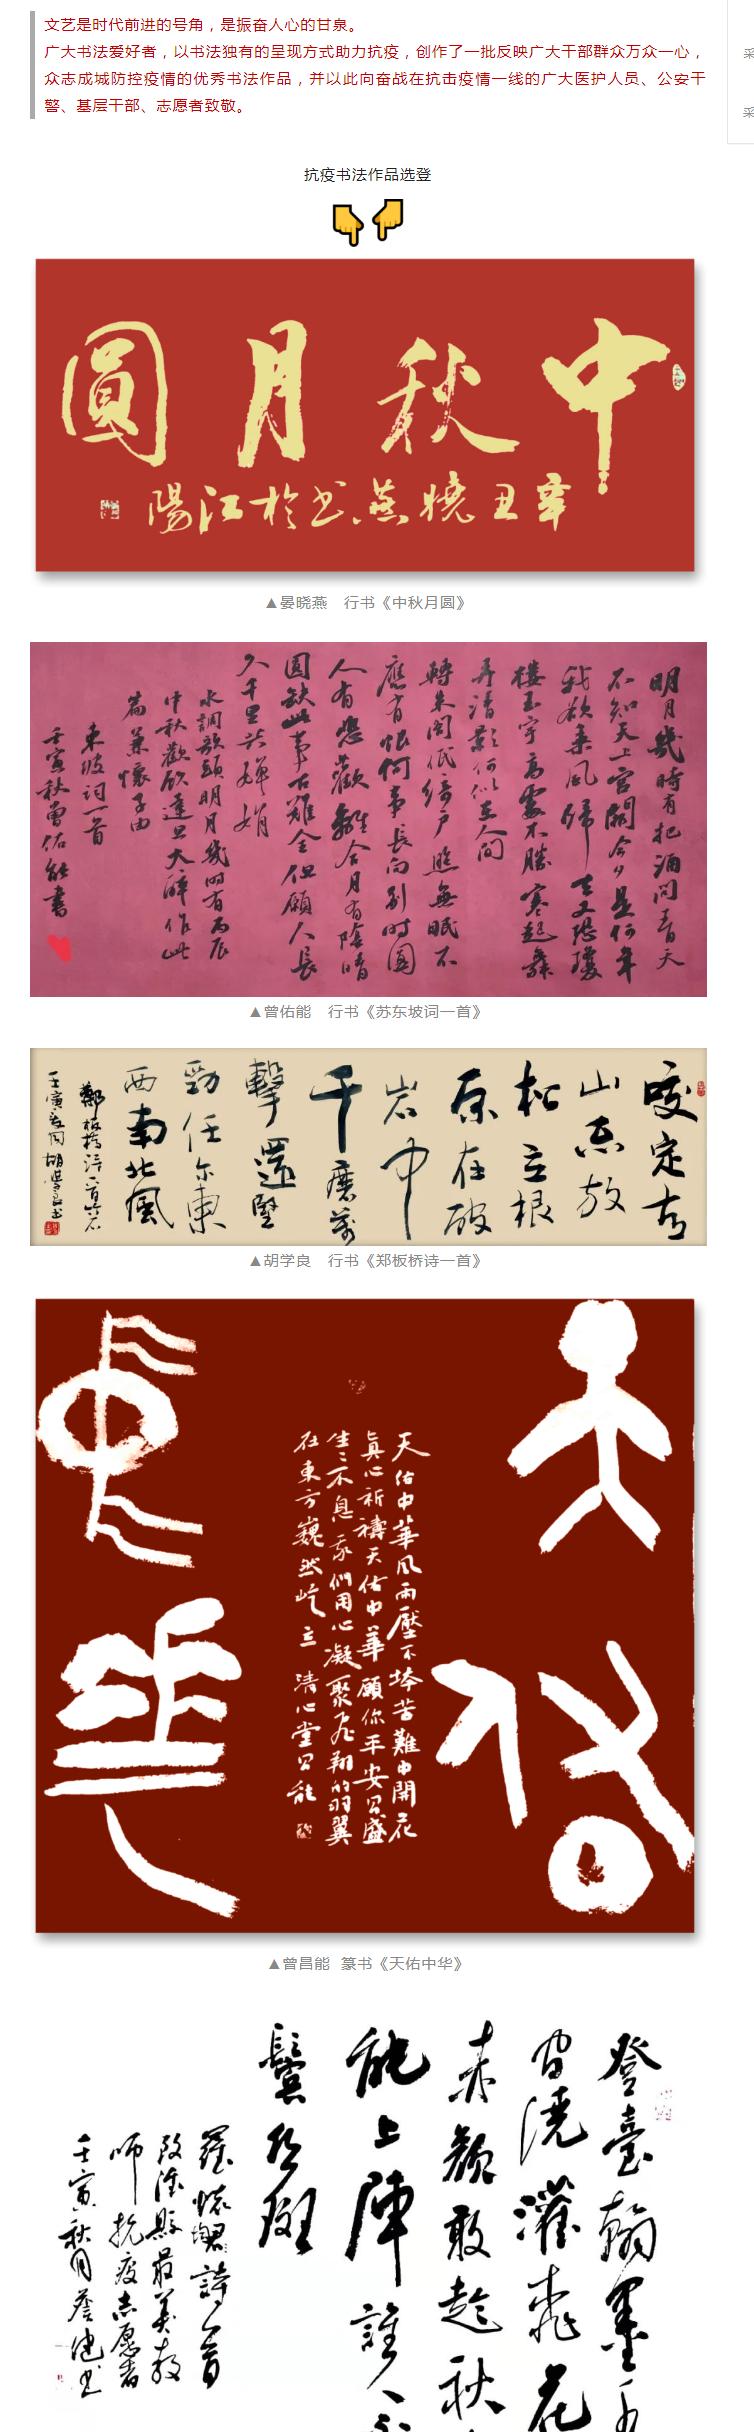 文艺是时代前进的号角，是振奋人心的甘泉。
广大书法爱好者，以书法独有的呈现方式助力抗疫，创作了一批反映广大干部群众万众一心，
众志成城防控疫情的优秀书法作品，并以此向奋战在抗击疫情一线的广大医护人员、公安干
警、基层干部、志愿者致敬。
采
采
抗疫书法作品选登
中秋月圓
辛丑曉燕书於江陽
▲晏晓燕　行书《中秋月圆》
明月幾時有把酒問青天
不知天上宫闕今夕是何年
我欲乘风归去又恐瓊
樓玉宇高處不勝寒起舞
弄清影何似在人间
轉朱阁低绮户照無眠不
應有恨何事長向别时圆
人有悲歡離合月有陰晴
圆缺此事古難全但願人長
久千里共嬋娟
水調歌頭明月幾时有丙辰
中秋歡飲達旦大醉作此
篇兼懷子由
東坡词一首
壬寅秋曾佑能書
▲曾佑能　行书《苏东坡词一首》
咬定青
山不放
松立根
原在破
岩中
千磨萬
擊還堅
勁任尔東
西南北風
鄭板桥诗一首竹石
胡學良书
▲胡学良　行书《郑板桥诗一首》
天佑
中華
天佑中華风雨壓不垮苦難中開花
真心祈禱天佑中華願你平安昌盛
生生不息我们用心凝聚展翔的羽翼
在東方巍然屹立 清心堂昌能
▲曾昌能　篆书《天佑中华》
登臺翰墨
澆灌桃花
赤颜敢趁秋
能上陣誰人
鬓
羅懷 詩一首
最美教
师抗疫志愿者
壬寅秋月